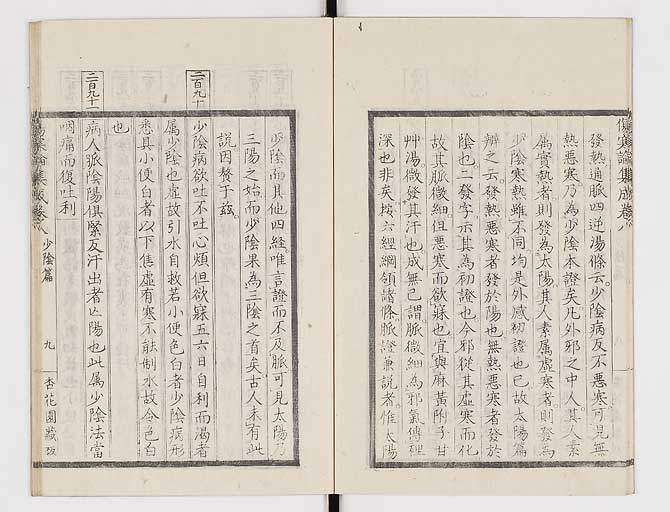 傷寒論集成卷八
發熱通脈四逆湯條云少陰病反不惡寒可見無
熱惡寒乃為少陰本證矣凡外邪之中人其人素
屬實熱者則發為太陽其人素屬虛寒者則發為
少陰寒熱雖不同均是外感初證也已故太陽篇
辨之云發熱惡寒者發於陽也無熱惡寒者發於
陰也二發字示其為初證也今邪從其虛寒而化
故其脈微細但惡寒而欲寐也宜與麻黃附子甘
艸湯微發其汗也成無己謂脈微細為邪氣傳裡
深也非矣按六經綱領諸條脈證兼說者惟太陽
少陰而其他四經唯言證而不及脈可見太陽乃
三陽之始而少陰果為三陰之首矣古人未有此
說因贅于茲
二百九十
少陰病欲吐不吐心煩但欲寐五六日自利而渴者
屬少陰也虛故引水自救若小便色白者少陰病形
悉具小便白者以下焦虛有寒不能制水故令色白
也
二百九十一
病人脈陰陽俱緊反汗出者亾陽也此屬少陰法當
咽痛而復吐利
傷寒論集成卷八
少陰篇
九
杏花園藏版